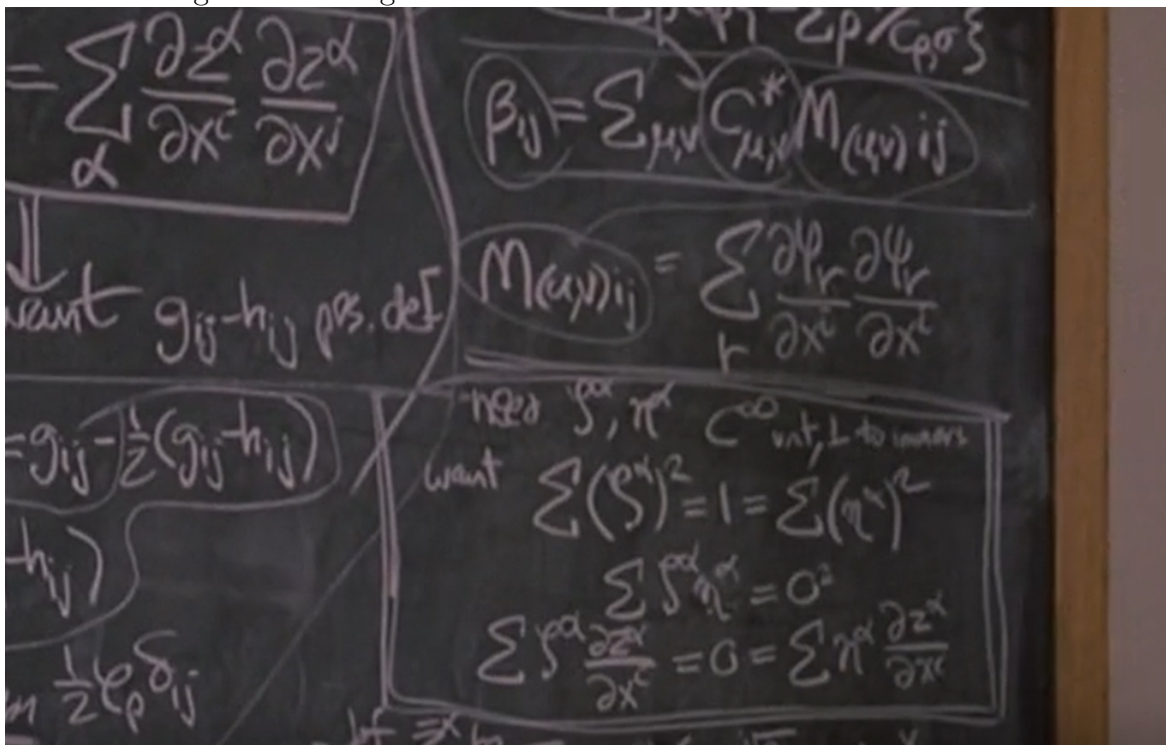 = Σ_α ∂z^α/∂x^i ∂z^α/∂x^j
want g_ij - h_ij pos. def
= g_ij - 1/2 (g_ij - h_ij)
- h_ij)
1/2 φ_ρ δ_ij
β_ij = Σ_μ,ν C*_μ,ν M_(μ,ν) ij
M_(μ,ν) ij = Σ_r ∂ψ_r/∂x^i ∂ψ_r/∂x^i
need ζ^α, η^α C^∞ unt, ⊥ to
want Σ(ζ^α)^2 = 1 = Σ(η^α)^2
Σ ζ^α η^α = 0
Σ ζ^α ∂z^α/∂x^i = 0 = Σ η^α ∂z^α/∂x^i